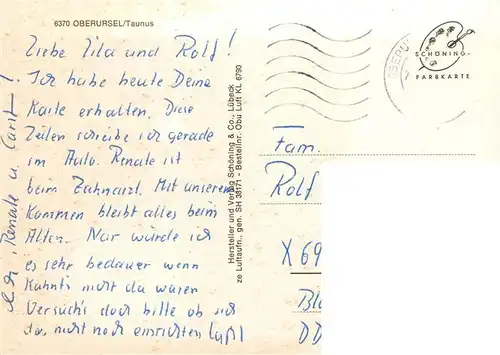 6370 OBERURSEL/Taunus
Liebe Zita und Rolf!
Ich habe heute Deine
Karte erhalten. Diese
Zeilen schreibe ich gerade
im Auto. Renate ist
beim Zahnarzt. Mit unserem
Kommen bleibt alles beim
Alten. Nur würde ich
es sehr bedauer wenn
nicht da wären
Versuch's doch bitte ob sich
das nicht noch einrichten läßt
Renate u.
Hersteller und Verlag Schöning & Co., Lübeck
ze Luftaufn., gen. SH 38171 - Bestellnr. Obu Luft KL 6790
SCHÖNING-
FARBKARTE
OBERU
Fam.
Rolf
X 69
DD